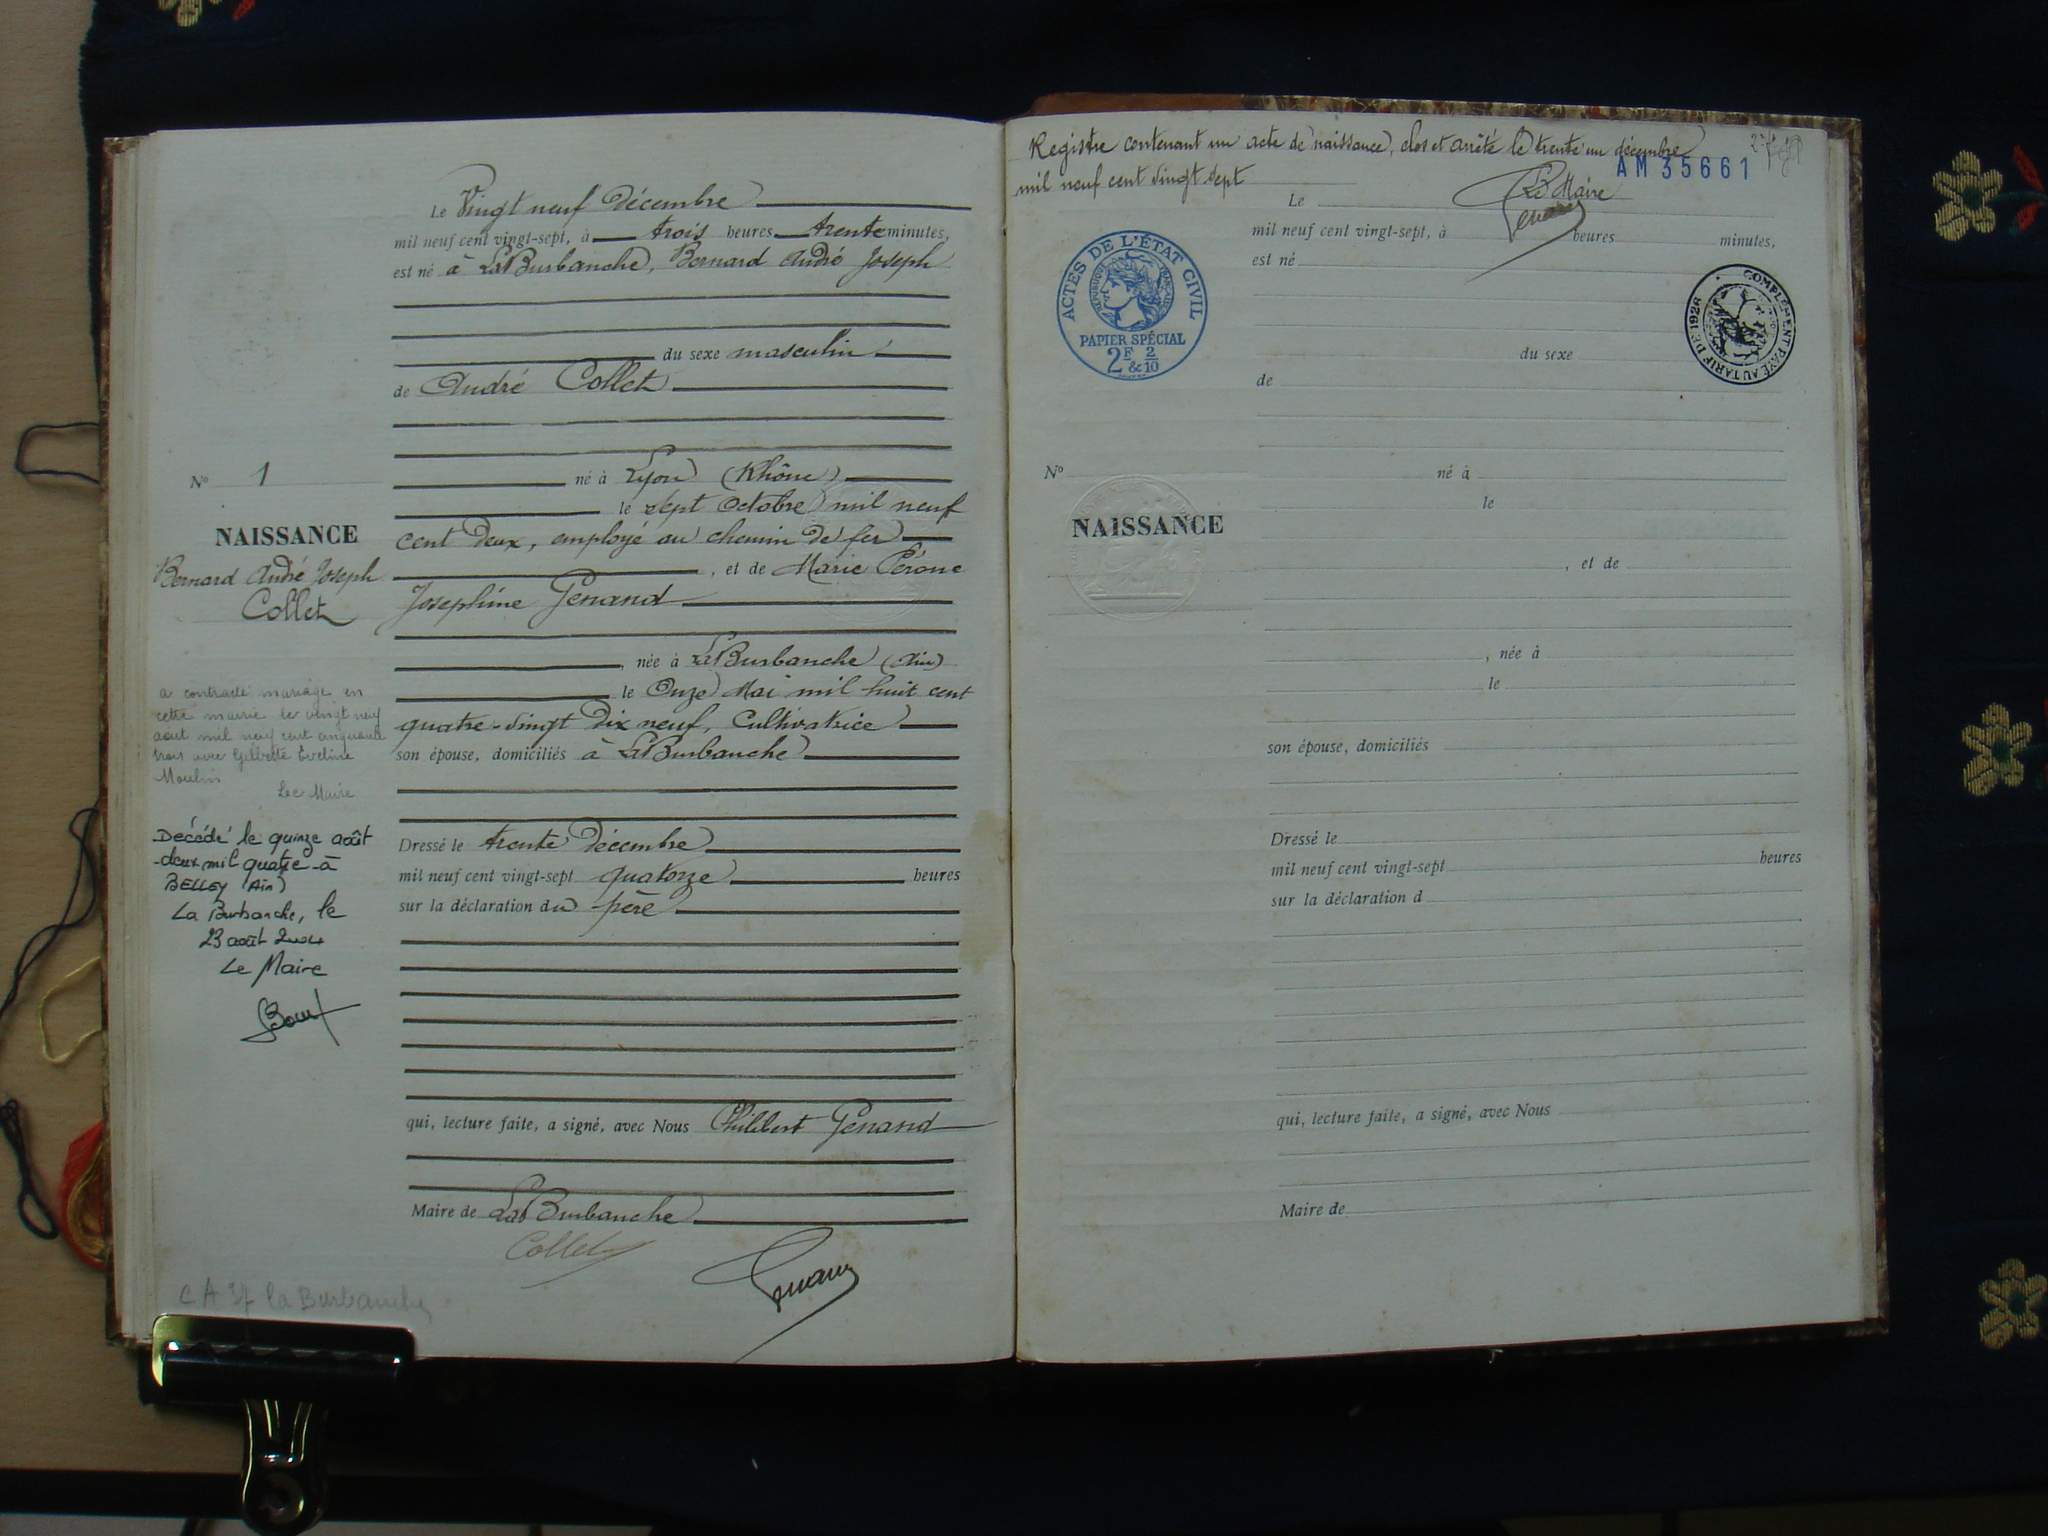 Le Vingt neuf Décembre
mil neuf cent vingt-sept, à trois heures trente minutes,
est né à La Burbanche, Bernard André Joseph
du sexe masculin
de André Collet
né à Lyon (Rhône)
le sept Octobre mil neuf
cent deux, employé au chemin de fer
, et de Marie Pérone
Joséphine Genand
, née à La Burbanche (Ain)
le Onze Mai mil huit cent
quatre-vingt dix neuf, Cultivatrice
son épouse, domiciliés à La Burbanche
Dressé le trente Décembre
mil neuf cent vingt-sept quatorze heures
sur la déclaration du père
qui, lecture faite, a signé, avec Nous Philibert Genand
Maire de La Burbanche
Collet
Genand
N° 1
NAISSANCE
Bernard André Joseph
Collet
a contracté mariage en
cette mairie le vingt neuf
août mil neuf cent cinquante
trois avec Gilberte Eveline
Moulin
Le Maire
Décédé le quinze août
deux mil quatre à
BELLEY (Ain)
La Burbanche, le
23 août 2004
Le Maire
la Burbanche
Registre contenant un acte de naissance, clos et arrêté le trente un décembre
mil neuf cent vingt sept
AM 35661
Le Maire
Genand
Le
mil neuf cent vingt-sept, à heures minutes,
est né
ACTES DE L'ÉTAT CIVIL
RÉPUBLIQUE FRANÇAISE
PAPIER SPÉCIAL
2F & 2/10
COMPLÉMENT PAYÉ AU TARIF DE 1926
du sexe
de
N°
né à
le
NAISSANCE
, et de
, née à
le
son épouse, domiciliés
Dressé le
mil neuf cent vingt-sept heures
sur la déclaration d
qui, lecture faite, a signé, avec Nous
Maire de